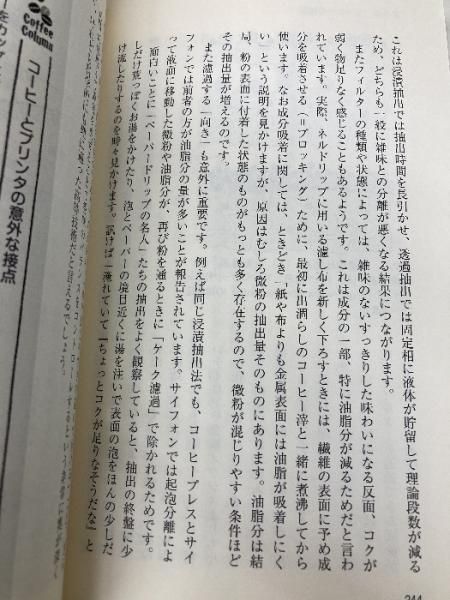 これは浸漬抽出では抽出時間を長引かせ、透過抽出では固定相に液体が貯留して理論段数が減る
ため、どちらも一般に雑味との分離が悪くなる結果につながります。
またフィルターの種類や状態によっては、雑味のないすっきりした味わいになる反面、コクが
弱く物足りなく感じることもあるようです。これは成分の一部、特に油脂分が減るためだと言わ
れています。実際、ネルドリップに用いる濾し布を新しく下ろすときには、繊維の表面に予め成
分を吸着させる（＝ブロッキング）ために、最初に出涸らしのコーヒー滓と一緒に煮沸してから
使います。なお成分吸着に関しては、ときどき「紙や布よりも金属表面には油脂が吸着しにく
い」という説明を見かけますが、原因はむしろ微粉の抽出量そのものにあります。油脂分は結
局、粉の表面に付着した状態のものがもっとも多く存在するので、微粉が混じりやすい条件ほど
その抽出量が増えるのです。
また濾過する「向き」も意外に重要です。例えば同じ浸漬抽出法でも、コーヒープレスとサイ
フォンでは前者の方が油脂分の量が多いことが報告されています。サイフォンでは起泡分離によ
って液面に移動した微粉や油脂分が、再び粉を通るときに「ケーク濾過」で除かれるためです。
面白いことに「ペーパードリップの名人」たちの抽出をよく観察していると、抽出の終盤に少
しだけ葉っぱお湯をかけたり、泡とペーパーの境目近くに湯を注いで表面の泡をほんの少しだ
け流したりするのを時々見かけます。訳けば「淹れていて『ちょっとコクが足りなそうだな』と
244
Coffee
Column
コーヒーとプリンタの意外な接点